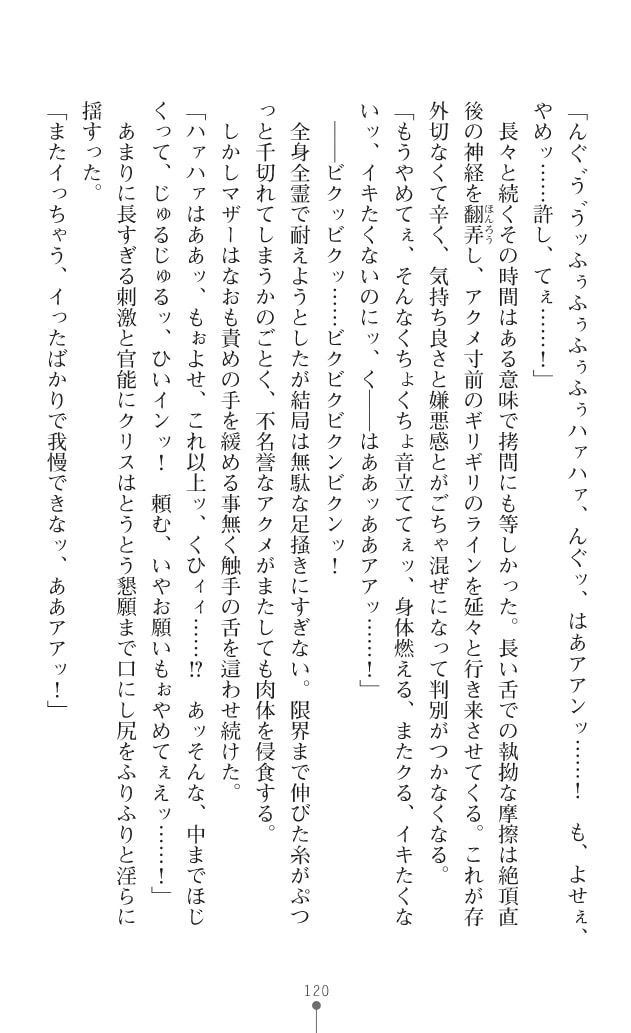 「んぐ゛う゛う゛ッふぅふぅふぅふぅハァハァ、んぐッ、はあアアンッ……！　も、よせぇ、
やめッ……許し、てぇ……！」
　長々と続くその時間はある意味で拷問にも等しかった。長い舌での執拗な摩擦は絶頂直
後の神経を翻弄し、アクメ寸前のギリギリのラインを延々と行き来させてくる。これが存
外切なくて辛く、気持ち良さと嫌悪感とがごちゃ混ぜになって判別がつかなくなる。
「もうやめてぇ、そんなくちょくちょ音立ててぇッ、身体燃える、またクる、イキたくな
いッ、イキたくないのにッ、く――はああッああアアッ……！」
　――ビクッビクッ……ビクビクビクンビクンッ！
　全身全霊で耐えようとしたが結局は無駄な足掻きにすぎない。限界まで伸びた糸がぷつ
っと千切れてしまうかのごとく、不名誉なアクメがまたしても肉体を侵食する。
　しかしマザーはなおも責めの手を緩める事無く触手の舌を這わせ続けた。
「ハァハァはああッ、もぉよせ、これ以上ッ、くひィィ……!?　あッそんな、中までほじ
くって、じゅるじゅるッ、ひいインッ！　頼む、いやお願いもぉやめてぇえッ……！」
　あまりに長すぎる刺激と官能にクリスはとうとう懇願まで口にし尻をふりふりと淫らに
揺すった。
「またイっちゃう、イったばかりで我慢できなッ、ああアアッ！」
ほんろう
120